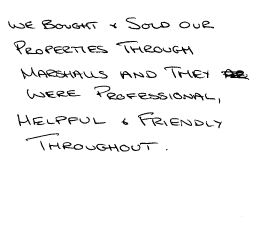 WE BOUGHT & SOLD OUR
PROPERTIES THROUGH
MARSHALLS AND THEY
WERE PROFESSIONAL,
HELPFUL & FRIENDLY
THROUGHOUT.